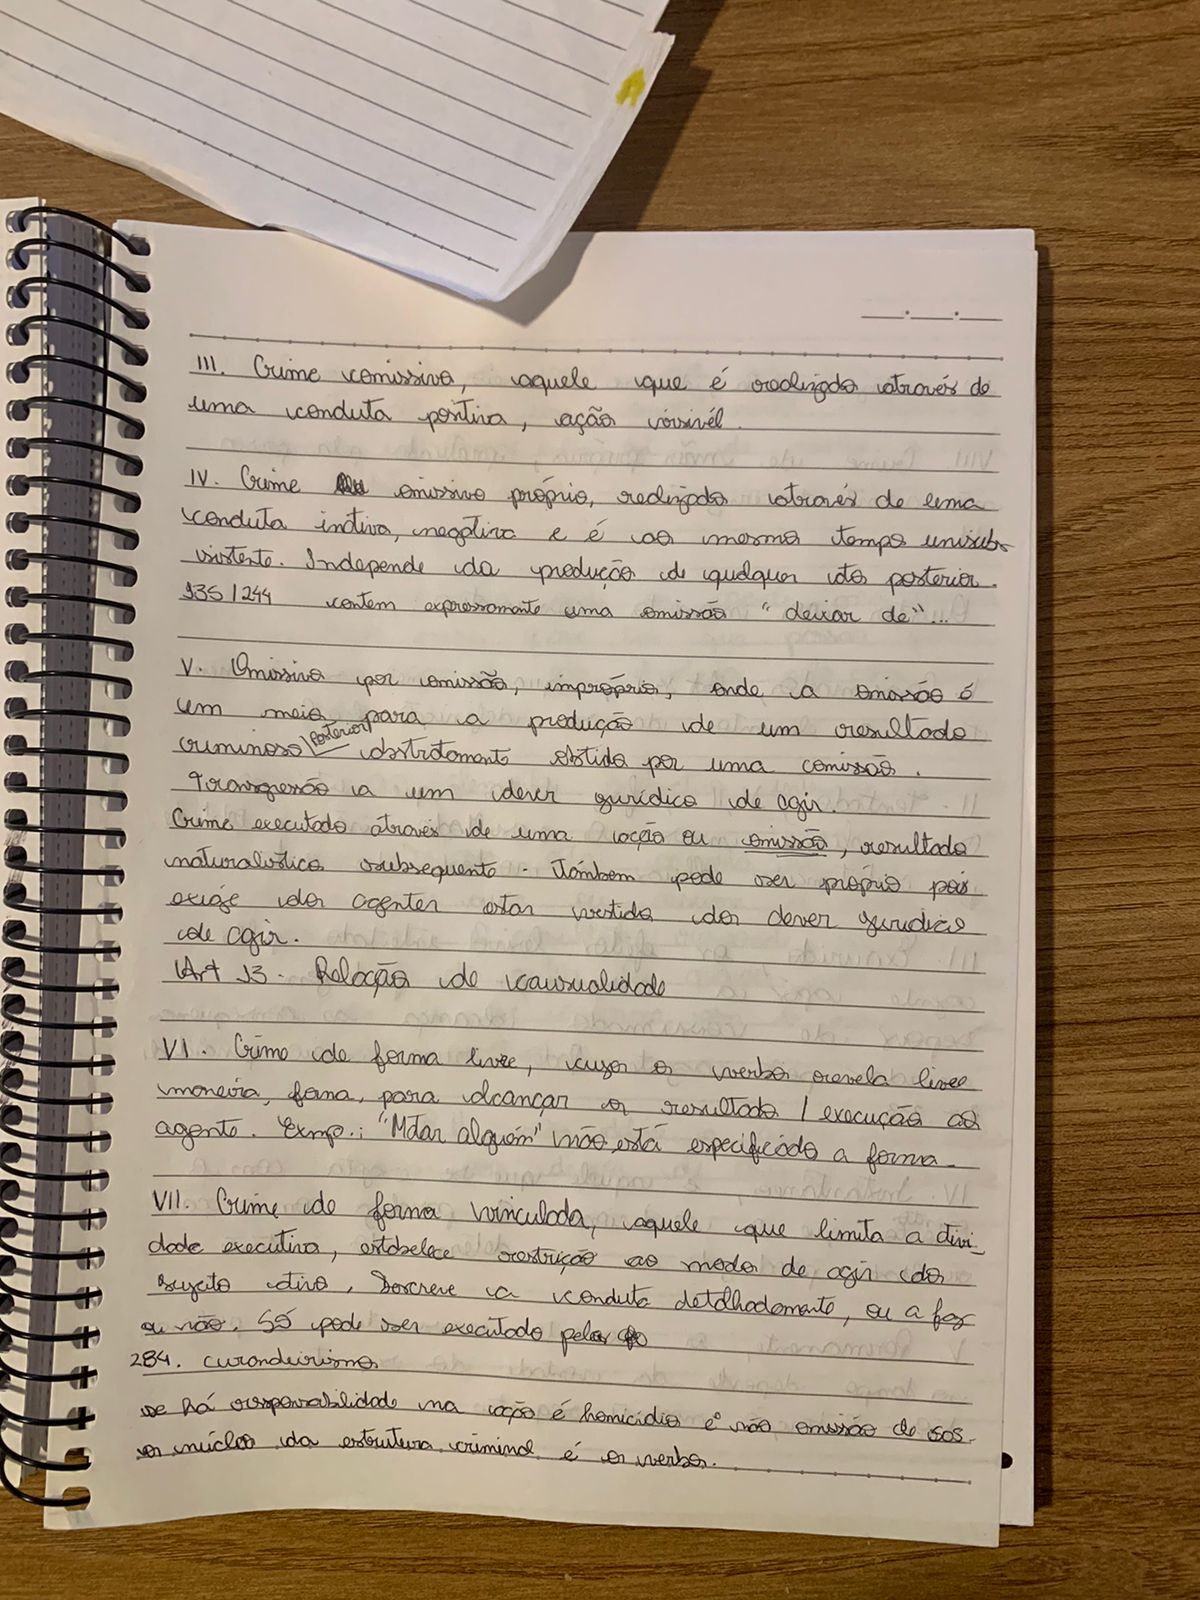 III. Crime comissivo, aquele que é realizado através de
uma conduta positiva, ação visivél.
IV. Crime omissivo próprio, realizado através de uma
conduta inativa, negativa e é ao mesmo tempo unisub-
sistente. Independe da produção de qualquer ato posterior.
135/244 contem expressamente uma omissão "deixar de"...
V. Omissivo por omissão, impróprio, onde a omissão é
um meio para a produção de um resultado
criminoso (posterior) abstratamente obtido por uma comissão.
Transgresão a um dever jurídico de agir.
Crime executado através de uma ação ou omissão, resultado
naturalistico subsequente. Também pode ser próprio pois
exige dos agentes estar vestido do dever juridico
de agir.
Art 13. Relação de causualidade
VI. Crime de forma livre, cujo o verbo revela livre
maneira, forma, para alcançar o resultado / execução ao
agente. Exmp.: "Matar alguém" não está especificado a forma.
VII. Crime de forma vinculada, aquele que limita a ativi-
dade executiva, estabelece restrição ao modo de agir do
sujeito ativo. Descreve a conduta detalhadamente, ou a faz
ou não. Só pode ser executado pela
284. curandeirismo
se há responsabilidade na ação é homicídio e não omissão de sos.
o núcleo da estrutura criminal é o verbo.